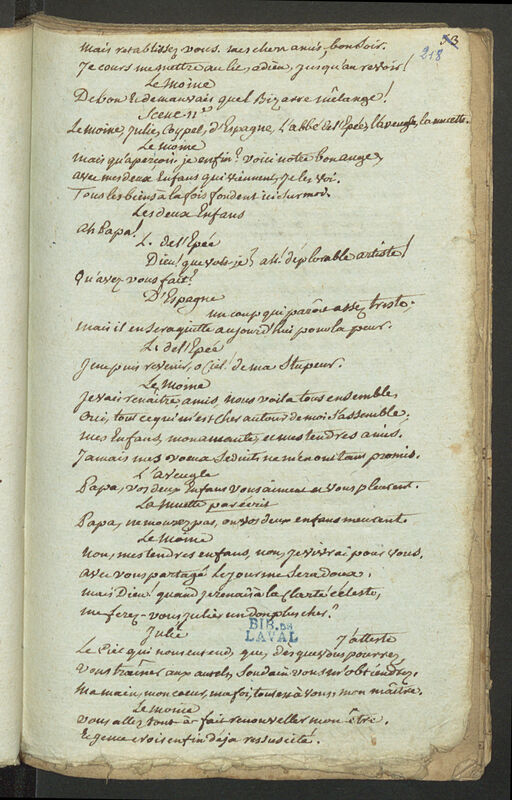 53
218
mais retablissez vous. mes chers amis, bonsoir.
Je cours me mettre au lit, adieu, jusqu'au revoir!
Le Moine
De bon & de mauvais quel bizarre mélange!
Scene 11e
Le moine, Julie, Coypel, d'Espagne, L'abbé de l'Epée, l'aveugle, la muette
Le Moine
mais qu'aperçois-je enfin? voici notre bon ange,
avec mes deux Enfans qui viennent, je les voi.
Tous les biens à la fois fondent ici sur moi.
Les deux Enfans
Ah Papa!
L. de l'Epée
Dieu! que vois-je? ah! déplorable artiste!
Qu'avez vous fait?
D'Espagne
un coup qui paroit assez triste;
mais il en sera quitte aujourd'hui pour la peur.
L. de l'Epée
Je ne puis revenir, o ciel! de ma stupeur.
Le Moine
Je vais renaitre amis, nous voila tous ensemble,
Oui, tout ce qui m'est cher autour de moi s'assemble;
mes Enfans, mon amante, et mes tendres amis.
Jamais mes voeux séduits ne m'en ont tant promis.
L'aveugle
Papa, vos deux Enfans vous aiment et vous pleurent.
La Muette par écrit
Papa, ne mourez pas, ou vos deux enfans meurent.
Le Moine
Non, mes tendres enfans, non, je vivrai pour vous,
avec vous partagé le jour me sera doux;
mais Dieu! quand je renais à la clarté céleste,
me ferez-vous Julie un don plus cher?
Julie
J'atteste
Le Ciel qui nous entend, que, des que vous pourrez
vous trainer aux autels, soudain vous m'obtiendrez,
Ma main, mon coeur, ma foi, tout est à vous, mon maître.
Le Moine
vous allez tout-à-fait renouveller mon être.
Et je me crois enfin déja ressuscité.
BIB. DE
LAVAL